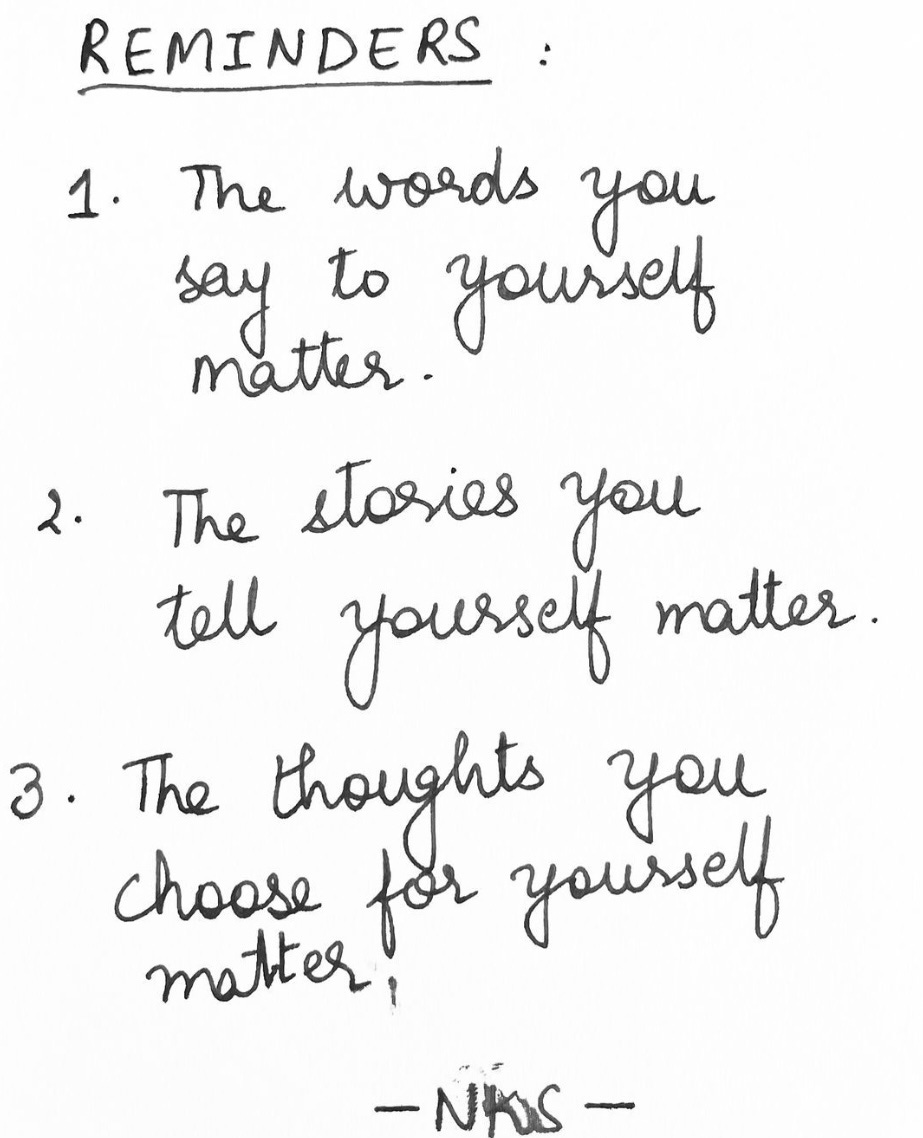 REMINDERS :
1. The words you
say to yourself
matter.
2. The stories you
tell yourself matter.
3. The thoughts you
choose for yourself
matter.
- NKS -